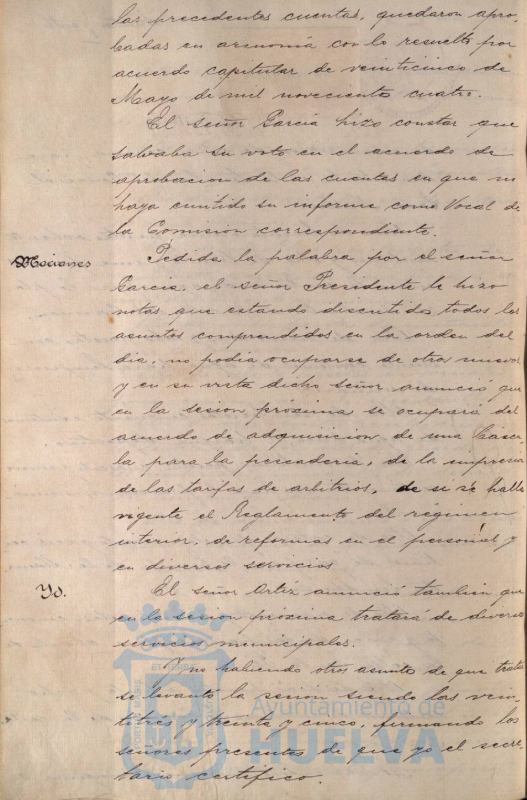 las precedentes cuentas, quedaron apro-
badas en armonía con lo resuelto por
acuerdo capitular de veinticinco de
Mayo de mil novecientos cuatro.
El señor Garcia hizo constar que
salvaba su voto en el acuerdo de
aprobacion de las cuentas en que no
haya emitido su informe como Vocal de
la Comision correspondiente.
Mociones
Pedida la palabra por el señor
Garcia, el señor Presidente le hizo
notar que estando discutidos todos los
asuntos comprendidos en la orden del
dia, no podia ocuparse de otros nuevos
y en su vista dicho señor anunció que
en la sesion próxima se ocupará del
acuerdo de adquisicion de una Báscu-
la para la pescaderia, de la impresion
de las tarifas de arbitrios, de si se halla
vigente el Reglamento del regimen
interior, de reformas en el personal y
en diversos servicios
Yd.
El señor Ortiz anunció tambien que
en la sesion próxima tratará de diversos
servicios municipales.
Y no habiendo otros asuntos de que tratar
se levantó la sesion siendo las vein-
titres y treinta y cinco, firmando los
señores presentes de que yo el secre-
tario certifico.
Ayuntamiento de
HUELVA